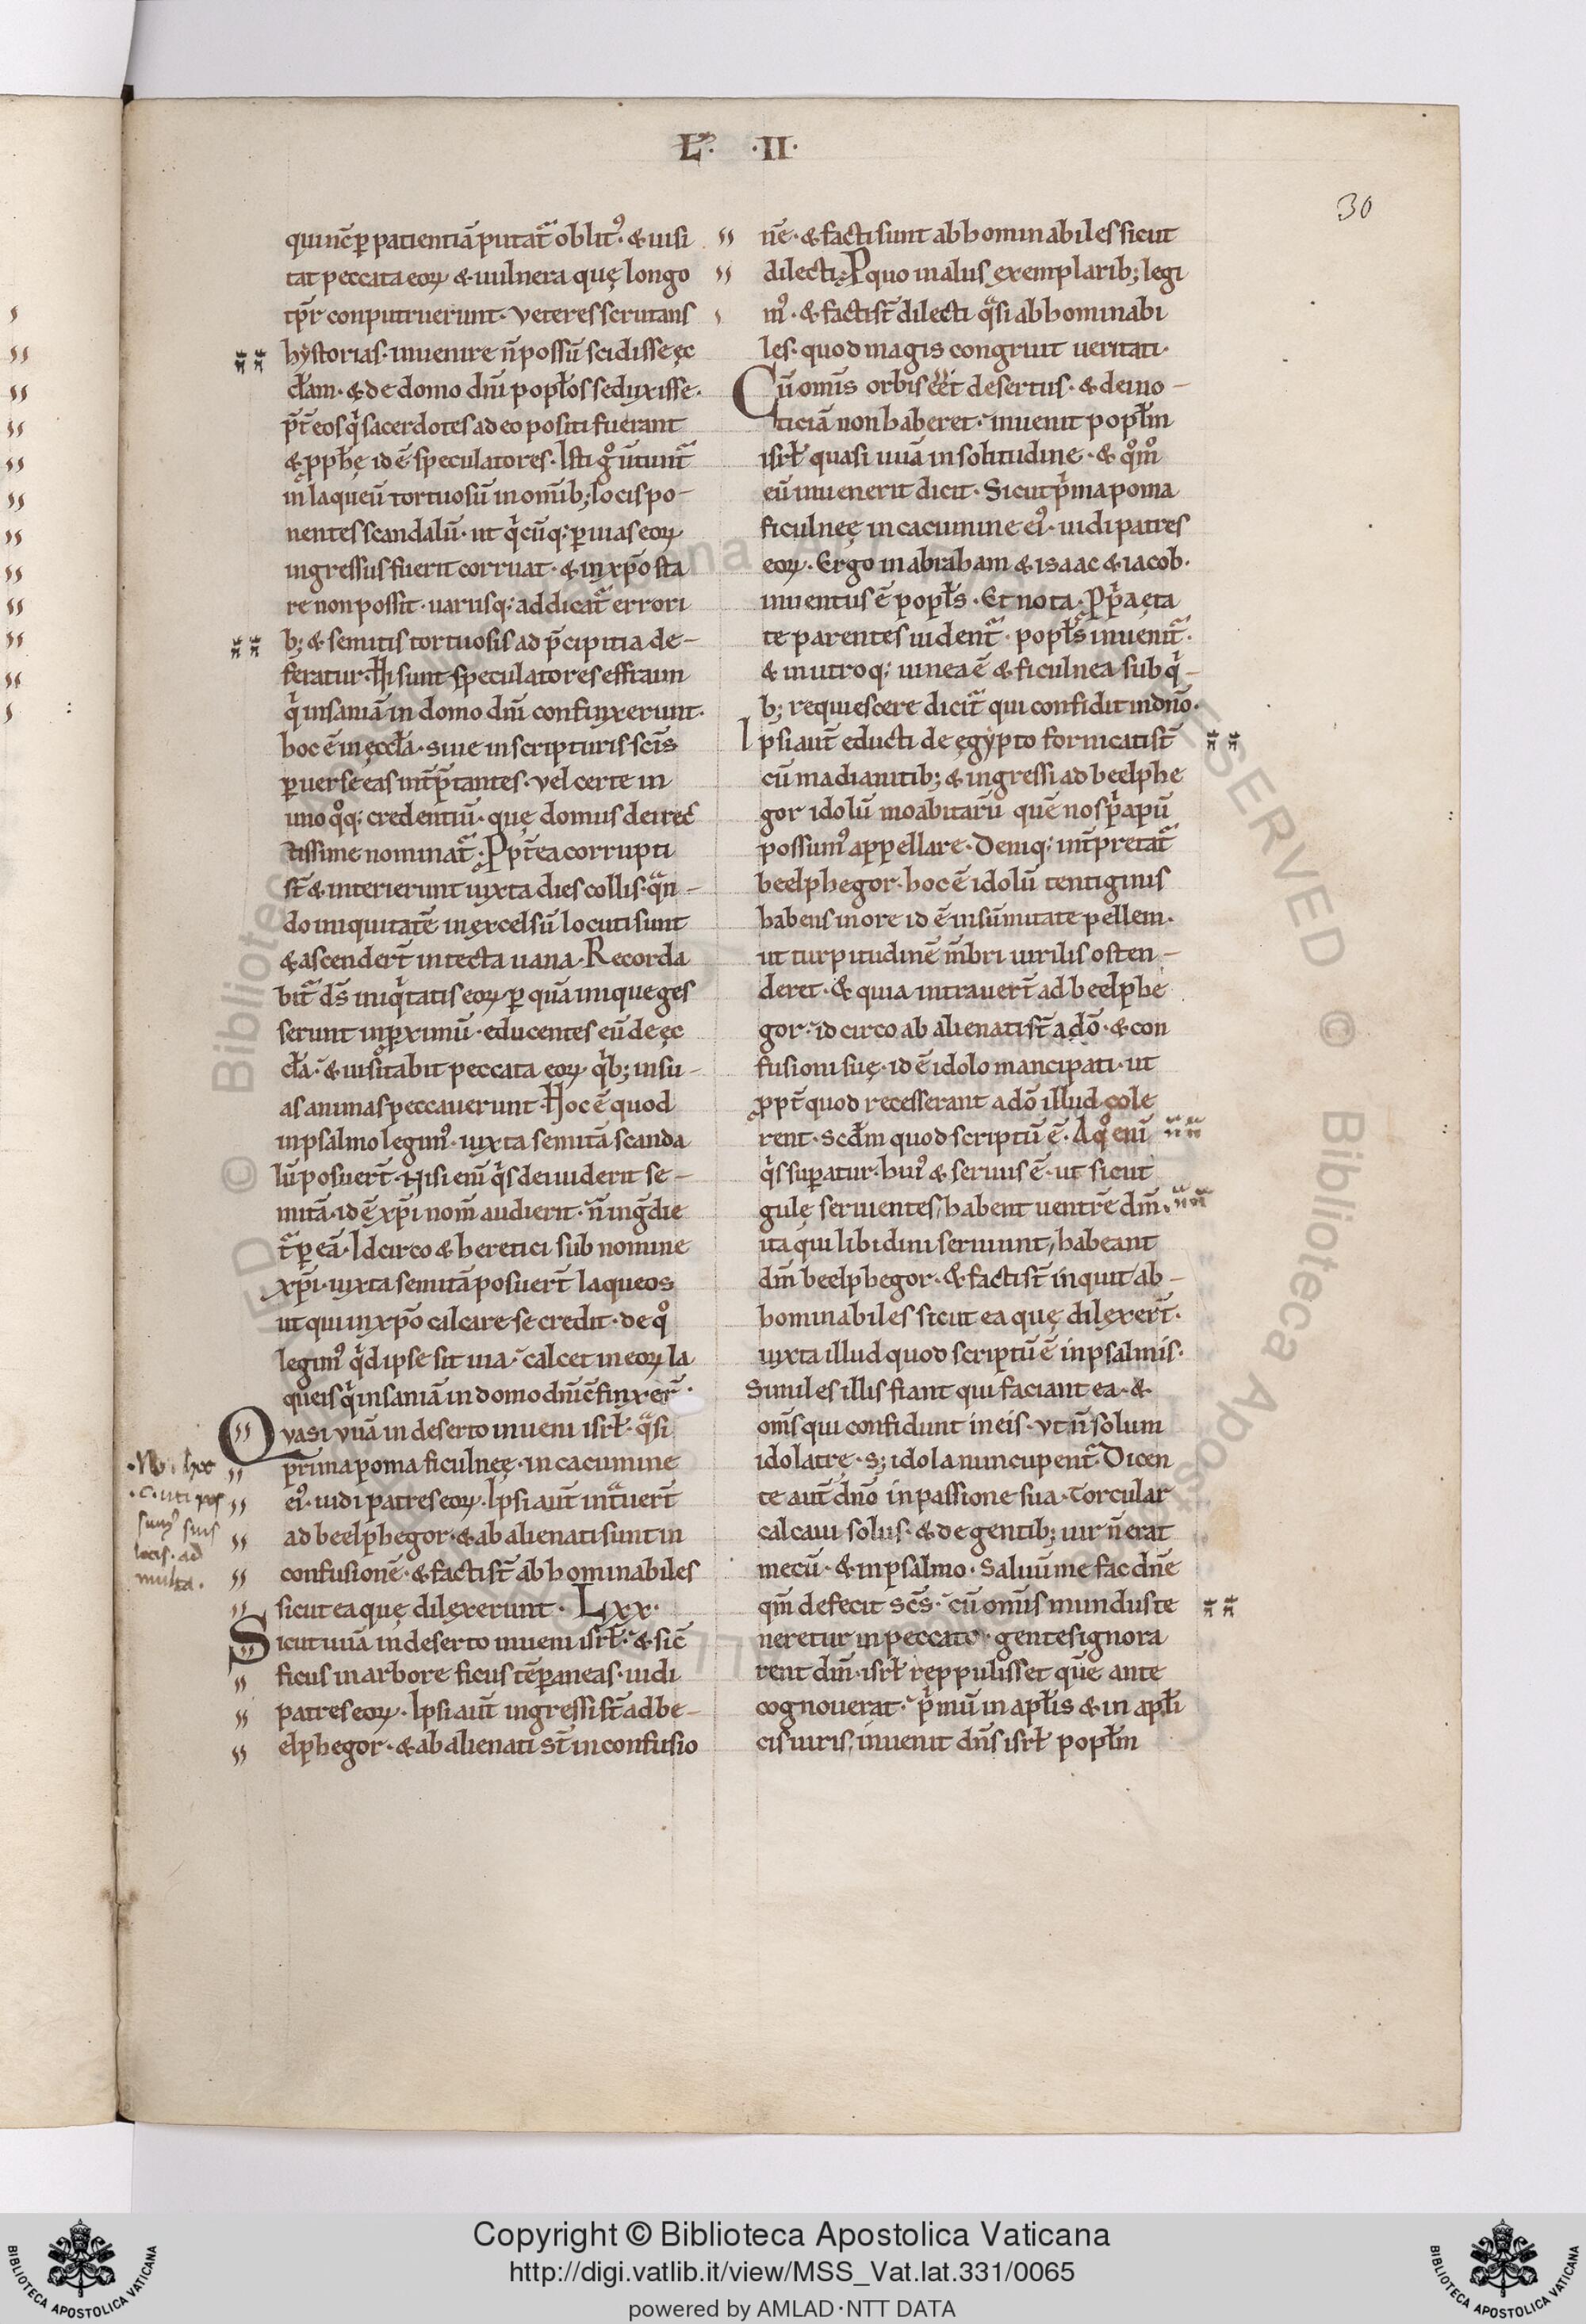 L̄. ·II·
30
qui nc̄ ꝑ patientiā putat᷑ oblitꝰ· & uisi
tat peccata eoꝝ & uulnera quę longo
tp̄r conputruerunt· veteres scrutans
hẏstorias· inuenire n̄ possū scidisse ęc
cłam· & de domo dn̄i popłos seduxisse·
p̄t̄ eos qͥ sacerdotes a deo positi fuerant
& ꝓph̄ę id ē speculatores· Isti gͦ uertunt᷑
in laqueū tortuosū in omīb; locis po-
nentes scandalū· ut qͥcūq; ꝑ uias eoꝝ
ingressus fuerit corruat· & in xp̄o sta
re non possit· uariisq; addicat᷑ errori
b; & semitis tortuosis ad p̄cipitia de-
feratur· Hi sunt speculatores effraim
qͥ insaniā in domo dn̄i confinxerunt·
hoc ē in ęccła· siue in scripturis sc̄is
ꝑuerse eas int̄p̄tantes· vel certe in
uno qͦq; credentiū· quę domus dei rec
tissime nominat᷑· Ꝓpt̄ea corrupti
st̄ & interierunt iuxta dies collis· qᷓn-
do iniquitatē in excelsū locuti sunt
& ascendert̄ in tecta uana· Recorda
bit᷑ ds̄ iniqͥtatis eoꝝ ꝑ quā inique ges
serunt in ꝓximū· educentes eū de ęc
cła· & uisitabit peccata eoꝝ· qͥb; in su-
as animas peccauerunt· Hoc ē quod
in psalmo legimꝰ· iuxta semitā scanda
lū posuert̄· Nisi em̄ qͥs dei uiderit se-
mitā· id ē xp̄i nom̄ audierit· n̄ ingᷓdie
t᷑ ꝑ eā· Idcirco & heretici sub nomine
xp̄i· iuxta semitā posuert̄ laqueos
ut qui in xp̄o calcare se credit· de qͦ
legimꝰ qͥd ipse sit uia· calcet in eoꝝ la
queis qͥ insaniā in domo dn̄i c̄finxer̄·
Qvasi vuā in deserto inueni isrł· qᷓsi
prima poma ficulneę· in cacumine
eiꝰ· uidi patres eoꝝ· Ipsi aut̄ intᷓuert̄
ad beelphegor· & abalienati sunt in
confusionē· & facti st̄ abhominabiles
sicut ea quę dilexerunt· Lxx·
Sicut uuā in deserto inueni isrł· & sic̄
ficus in arbore ficus tēꝑaneas· uidi
patres eoꝝ· Ipsi aut̄ ingressi st̄ ad be-
elphegor· & abalienati st̄ in confusio
locis· ad
multa·
nē· & facti sunt abhominabiles sicut
dilecti· Ꝓ quo in aliis exemplarib; legi
mꝰ· & facti st̄ dilecti qᷓsi abhominabi
les· quod magis congruit ueritati·
Cū omīs orbis eēt desertus· & dei no-
ticiā non haberet· inuenit popłm
isrł quasi uuā in solitudine· & qͦmͦ
eū inuenerit dicit· Sicut pͥma poma
ficulneę in cacumine eiꝰ· uidi patres
eoꝝ· Ergo in abraham & isaac & iacob·
inuentus ē popłs· Et nota· ꝓpͥa ęta
te parentes uident᷑· popłs inuenit᷑·
& in utroq; uinea ē & ficulnea sub qͥ-
b; requiescere dicit᷑ qui confidit in dn̄o·
Ipsi aut̄ educti de ęgẏpto fornicati st̄
cū madianitib; & ingressi ad beelphe
gor idolū moabitarū quē nos pͥapū
possumꝰ appellare· Deniq; int̄pretat᷑
beelphegor· hoc ē idolū tentiginis
habens in ore id ē in sūmitate pellem·
ut turpitudinē mēbri uirilis osten-
deret· & quia intrauert̄ ad beelphe
gor· idcirco abalienati st̄ a dō· & con
fusioni suę· id ē idolo mancipati· ut
ꝓpt̄ quod recesserant a dō illud cole
rent· scd̄m quod scriptū ē· A qͦ enī
qͥs suꝑatur· huiꝰ & seruus ē· ut sicut
gulę seruientes, habent uentrē dm̄·
ita qui libidini seruiunt, habeant
dm̄ beelphegor· & facti st̄ inquit ab-
hominabiles sicut ea quę dilexert̄·
iuxta illud quod scriptū ē in psalmis·
Similes illis fiant qui faciant ea· &
om̄s qui confidunt in eis· vt n̄ solum
idolatrę· s; idola nuncupent᷑· Dicen
te aut̄ dn̄o in passione sua· Torcular
calcaui solus· & de gentib; uir n̄ erat
mecū· & in psalmo· Saluū me fac dn̄e
qm̄ defecit sc̄s· cū omīs mundus te
neretur in peccato· gentes ignora
rent dm̄· isrł reppulisset quē ante
cognouerat· pͥmū in apłis & in apłi
cis uiris, inuenit dn̄s isrł popłm
Copyright © Biblioteca Apostolica Vaticana
http://digi.vatlib.it/view/MSS_Vat.lat.331/0065
powered by AMLAD·NTT DATA
BIBLIOTECA APOSTOLICA VATICANA
BIBLIOTECA APOSTOLICA VATICANA